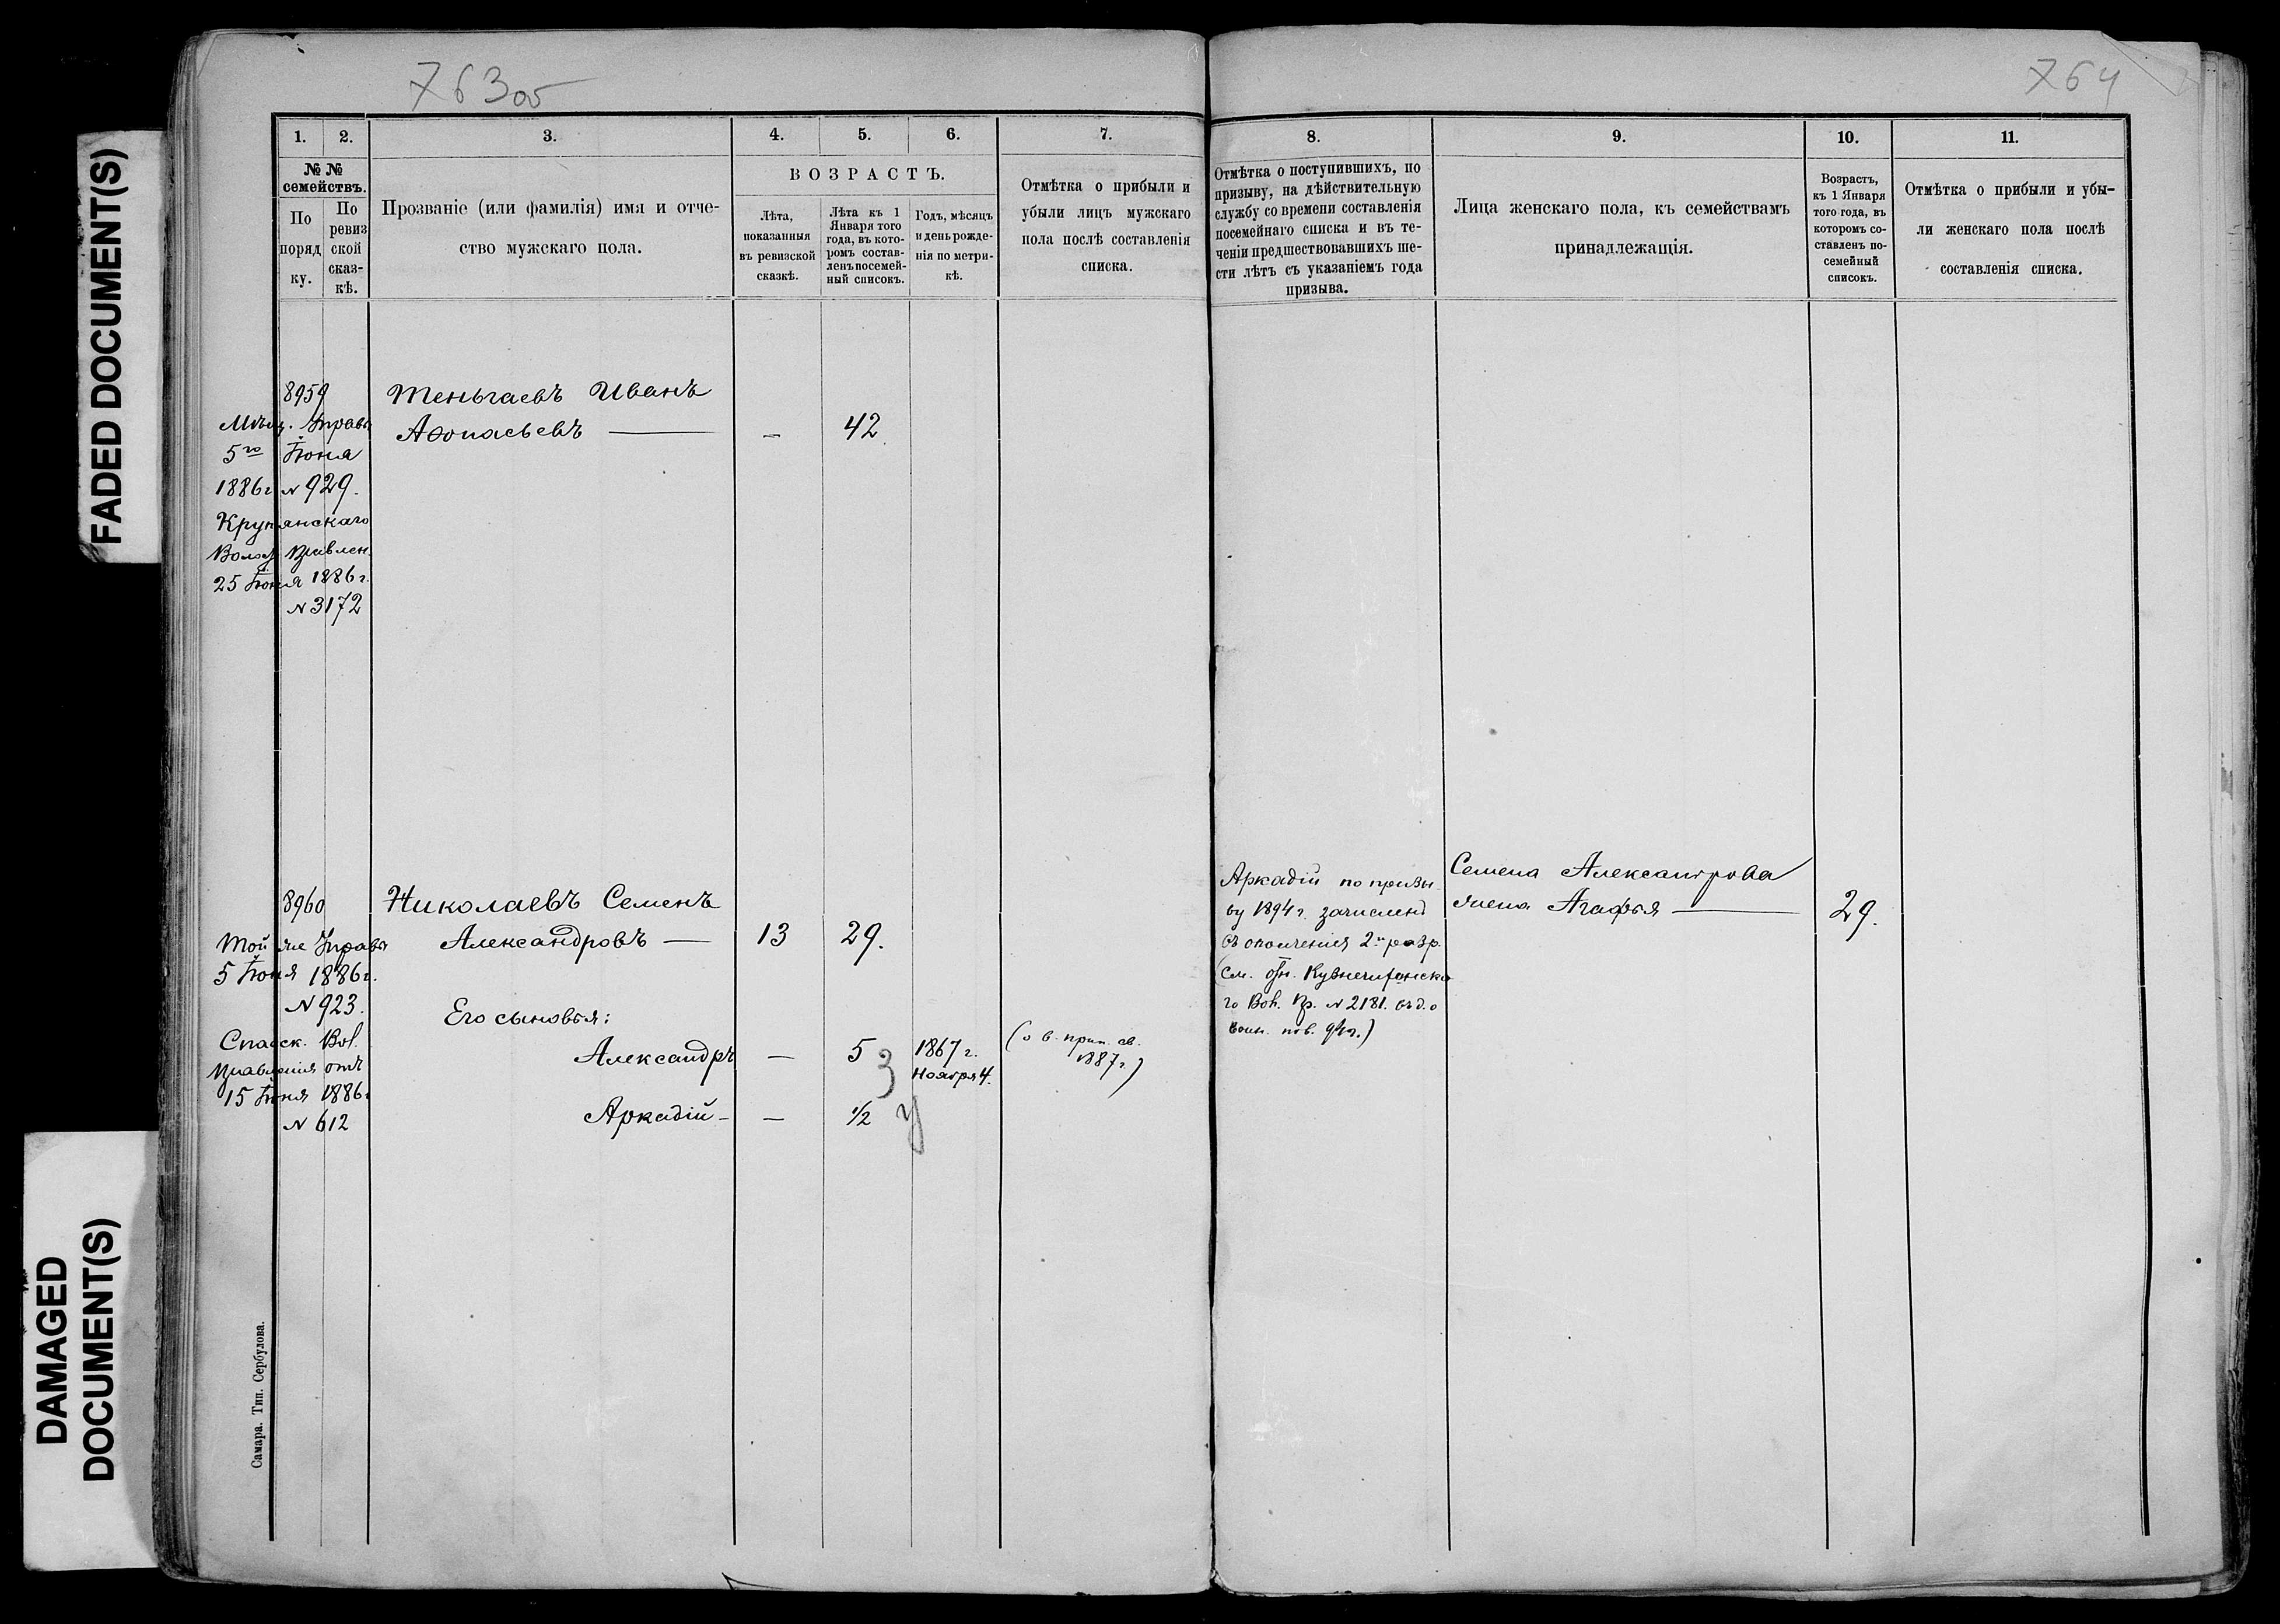 FADED DOCUMENT(S)
DAMAGED
DOCUMENT(S)
763об
764
1.
2.
3.
4.
5.
6.
7.
№ №
семействъ.
По
поряд
ку.
По
ревиз
ской
сказ-
кѣ.
Прозваніе (или фамилія) имя и отче-
ство мужскаго пола.
ВОЗРАСТЪ.
Лѣта,
показанныя
въ ревизской
сказкѣ.
Лѣта къ 1
Января того
года, въ кото-
ромъ состав-
ленъ посемей-
ный списокъ.
Годъ, мѣсяцъ
и день рожде-
нія по метри-
кѣ.
Отмѣтка о прибыли и
убыли лицъ мужскаго
пола послѣ составленія
списка.
8959
Мѣщ. Управы
5го Іюня
1886г №929.
Крупянскаго
Волос. Правлен.
25 Іюня 1886г.
№3172
Теньгаевъ Иванъ
Аѳонасьевъ
—
42
8960
Той же Управы
5 Іюня 1886г.
№923.
Спасск. Вол.
Правленія отъ
15 Іюня 1886г
№ 612
Николаевъ Семенъ
Александровъ —
13
29.
Его сыновья:
Александръ
—
5
3
1867 г.
Ноября 4.
1887г)
Аркадій -
—
½
у
Самара. Тип. Сербулова.
8.
9.
10.
11.
Отмѣтка о поступившихъ, по
призыву, на дѣйствительную
службу со времени составленія
посемейнаго списка и въ те-
ченіи предшествовавшихъ ше-
сти лѣтъ съ указаніемъ года
призыва.
Лица женскаго пола, къ семействамъ
принадлежащія.
Возрастъ,
къ 1 Января
того года, въ
которомъ со-
ставленъ по-
семейный
списокъ.
Отмѣтка о прибыли и убы-
ли женскаго пола послѣ
составленія списка.
Аркадій по призы
ву 1894 г. зачисленъ
въ ополченія 2го разр.
(см. отн.
№ 2181.
Семена Александрова
жена Агафья —
29.